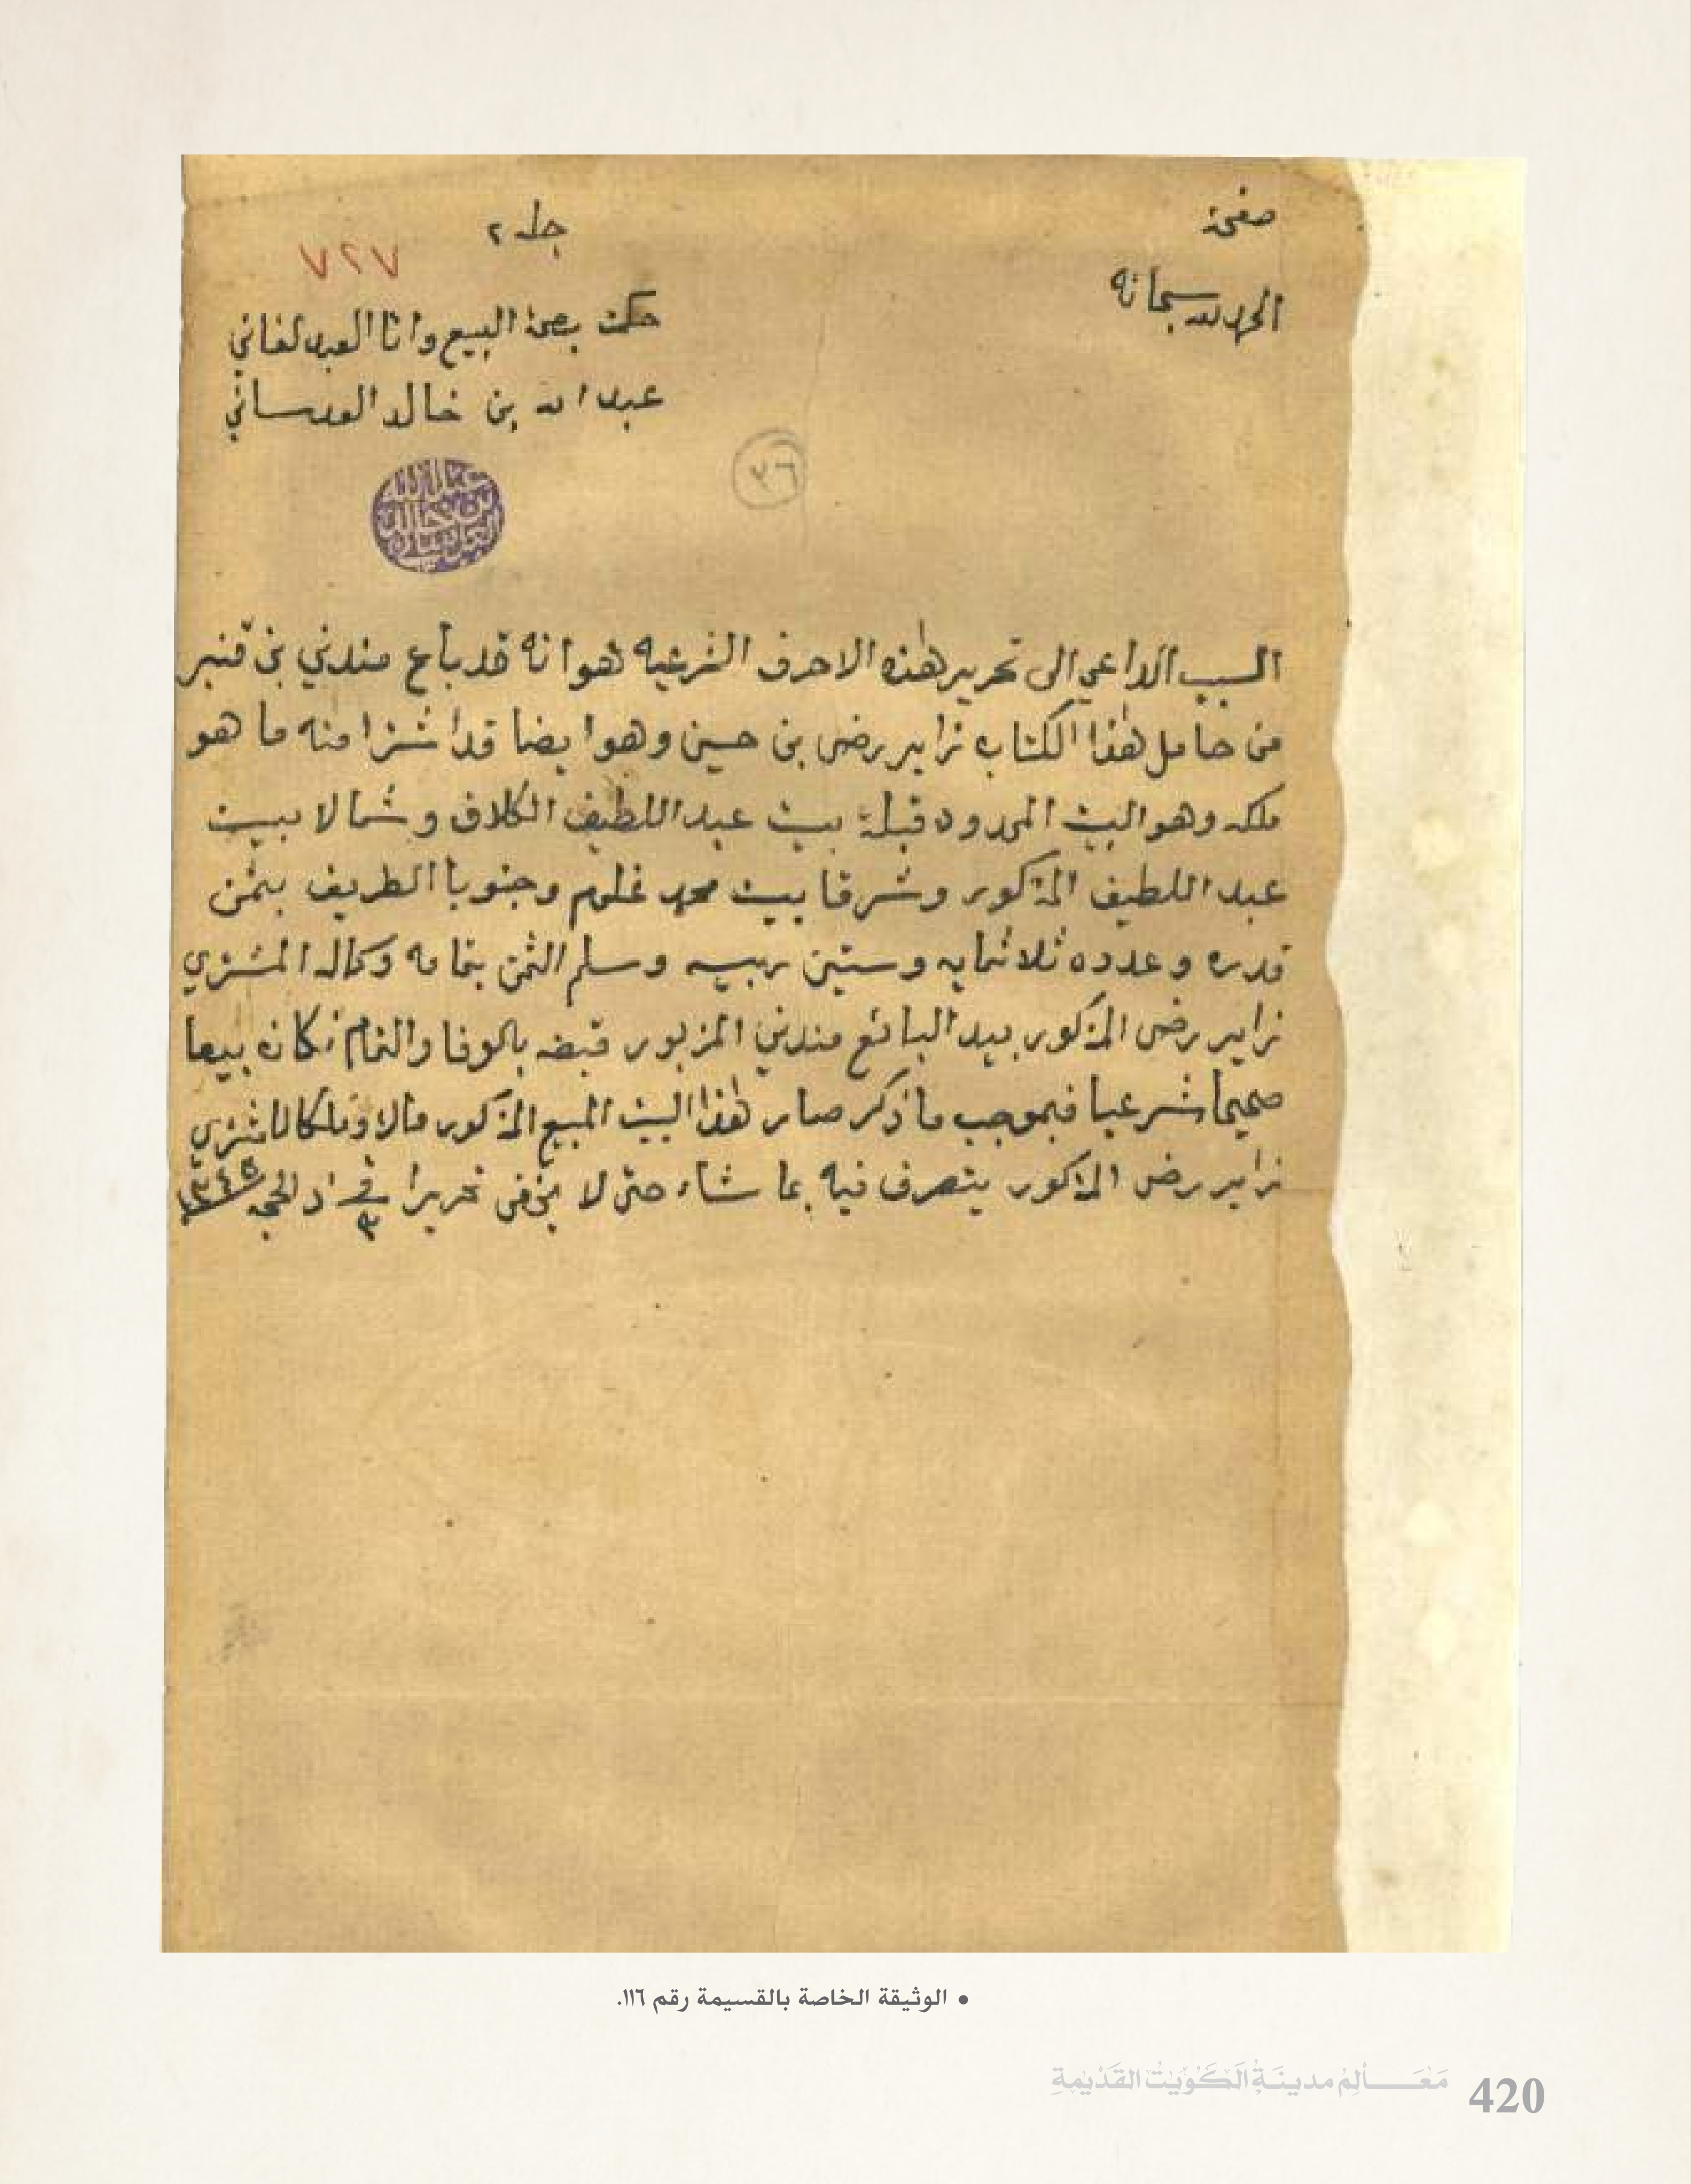 صفحة
جلد ٢
٧٢٧
الحمد لله سبحانه
حكمت بصحة البيع وانا العبد الفاني
عبد الله بن خالد العدساني
٧٦
السبب الداعي الى تحرير هذه الاحرف الشرعيه هو انه قد باع مندني بن قنبر
من حامل هذا الكتاب زاير رضى بن حسين وهو ايضا قد اشترا منه ما هو
ملكه وهو البيت المحدود قبلة بيت عبد اللطيف الكلاف وشمالا بييت
عبد اللطيف المذكور وشرقا بيت محمد غلوم وجنوبا الطريف بثمن
قدره وعدده ثلاثمايه وستين ربيه وسلم الثمن بتمامه وكماله المشتري
زاير رضى المذكور بيد البائع مندني المزبور قبضه بالوفا والتمام فكانه بيعا
صحيحا شرعيا فبموجب ما ذكر صار هذا البيت المبيع المذكور مالا وملكا للمشتري
زاير رضى المذكور يتصرف فيه بما شاء حتى لا يخفى تحريرا في ٣ ذ الحجه ١٣٤٥
• الوثيقة الخاصة بالقسيمة رقم ١١٦.
مَعَـــالِمُ مدينَةُ الكُوَيْتُ القَدْيمَةِ
420